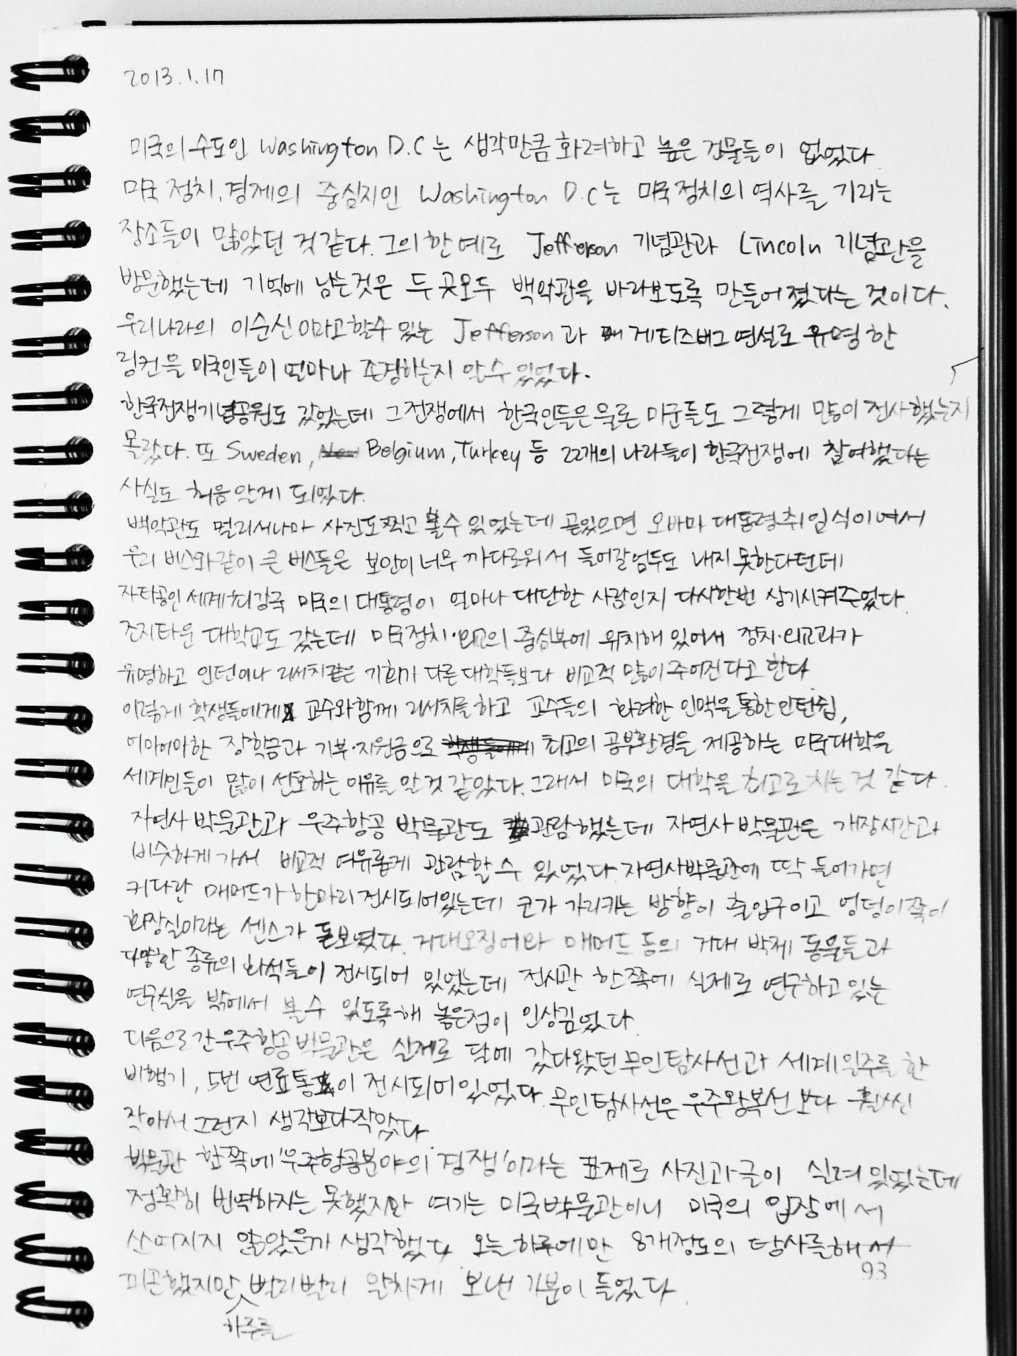 2013.1.17
미국의 수도인 Washington D.C는 생각만큼 화려하고 높은 건물들이 없었다
미국 정치, 경제의 중심지인 Washington D.C는 미국 정치의 역사를 기리는
장소들이 많았던 것 같다. 그의 한 예로 Jefferson 기념관과 Lincoln 기념관을
방문했는데 기억에 남는것은 두 곳모두 백악관을 바라보도록 만들어졌다는 것이다.
우리나라의 이순신이라고할수 있는 Jefferson과 게티즈버그 연설로 유명한
링컨을 미국인들이 얼마나 존경하는지 알수 있었다.
한국전쟁기념공원도 갔었는데 그전쟁에서 한국인들은 물론 미군들도 그렇게 많이 전사했는지
몰랐다. 또 Sweden, Belgium, Turkey 등 22개의 나라들이 한국전쟁에 참여했다는
사실도 처음 알게 되었다.
백악관도 멀리서나마 사진도찍고 볼수 있었는데 곧있으면 오바마 대통령취임식이여서
우리 버스와같이 큰 버스들은 보안이 너무 까다로워서 들어갈엄두도 내지 못한다던데
자타공인 세계최강국 미국의 대통령이 얼마나 대단한 사람인지 다시한번 상기시켜주었다.
조지타운 대학교도 갔는데 미국정치·외교의 중심부에 위치해 있어서 정치·외교과가
유명하고 인턴이나 리서치같은 기회가 다른대학들보다 비교적 많이주어진다고 한다
이렇게 학생들에게 교수와함께 리서치를하고 교수들의 화려한 인맥을통한인턴쉽,
어마어마한 장학금과 기부·지원금으로 최고의 공부환경을 제공하는 미국대학을
세계인들이 많이 선호하는 이유를 알것 같았다. 그래서 미국의 대학을 최고로치는 것 같다.
자연사박물관과 우주항공 박물관도 관람했는데 자연사박물관은 개장시간과
비슷하게가서 비교적 여유롭게 관람할수 있었다. 자연사박물관에 딱 들어가면
커다란 매머드가 한마리전시되어있는데 코가 가리키는 방향이 출입구이고 엉덩이쪽이
화장실이라는 센스가 돋보였다. 거대오징어와 매머드 등의 거대 박제 동물들과
다양한 종류의 화석들이 전시되어 있었는데 전시관 한쪽에 실제로 연구하고있는
연구실을 밖에서 볼수 있도록해 놓은점이 인상깊었다.
다음으로간우주항공박물관은 실제로 달에 갔다왔던무인탐사선과 세계일주를 한
비행기, 연료통이 전시되어있었다. 무인탐사선은 우주왕복선 보다 훨씬
작아서 그런지 생각보다작았다
박물관 한쪽에 '우주항공분야의 경쟁'이라는 표제로 사진과글이 실려있었는데
정확히 번역하지는 못했지만 여기는 미국박물관이니 미국의 입장에서
쓰여지지 않았을까 생각했다. 오늘하루에만 8개정도의 답사를해서
피곤했지만 하루를 빡리빨리 알차게 보낸 기분이 들었다.
93